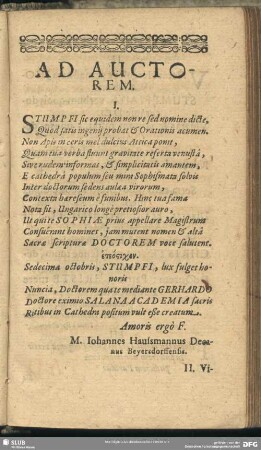 AD AUCTO-
REM.
I.
STUMPFI sic equidem non re sed nomine dicte,
Quod satis ingenii probas & Orationis acumen.
Non Apis in ceris mel dulcius Attica ponit,
Quam tua verba fluunt gravitate referta venustâ,
Sive rudem informas, & simplicitatis amantem,
E cathedrâ populum seu mox Sophismata solvis
Inter doctorum sedens aulæa virorum,
Contexta hæresium è fumibus. Hinc tua fama
Nota sit, Ungarico longè pretiosior auro,
Ut qui te SOPHIÆ prius appellare Magistrum
Consuêrunt homines, jam mutent nomen & altâ
Sacræ scripturæ DOCTOREM voce salutent,
Sedecima octobris, STUMPFI, lux fulget ho-
noris
Nuncia, Doctorem quâ te mediante GERHARDO
Doctore eximio SALANA ACADEMIA sacris
Ritibus in Cathedra positum vult esse creatum.
Amoris ergò F.
M. Iohannes Haussmannus Deca-
nus Beyersdorffensis.
II. Vi-